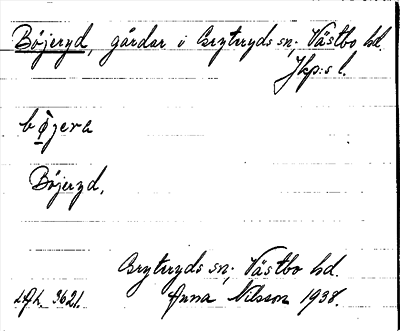 Böjeryd, gårdar i Bryteryds sn; Västbo hd.
Jkp:s l.
bö̀jera
Böjeryd,
Bryteryds sn; Västbo hd.
Anna Nilsson 1938.
3621.